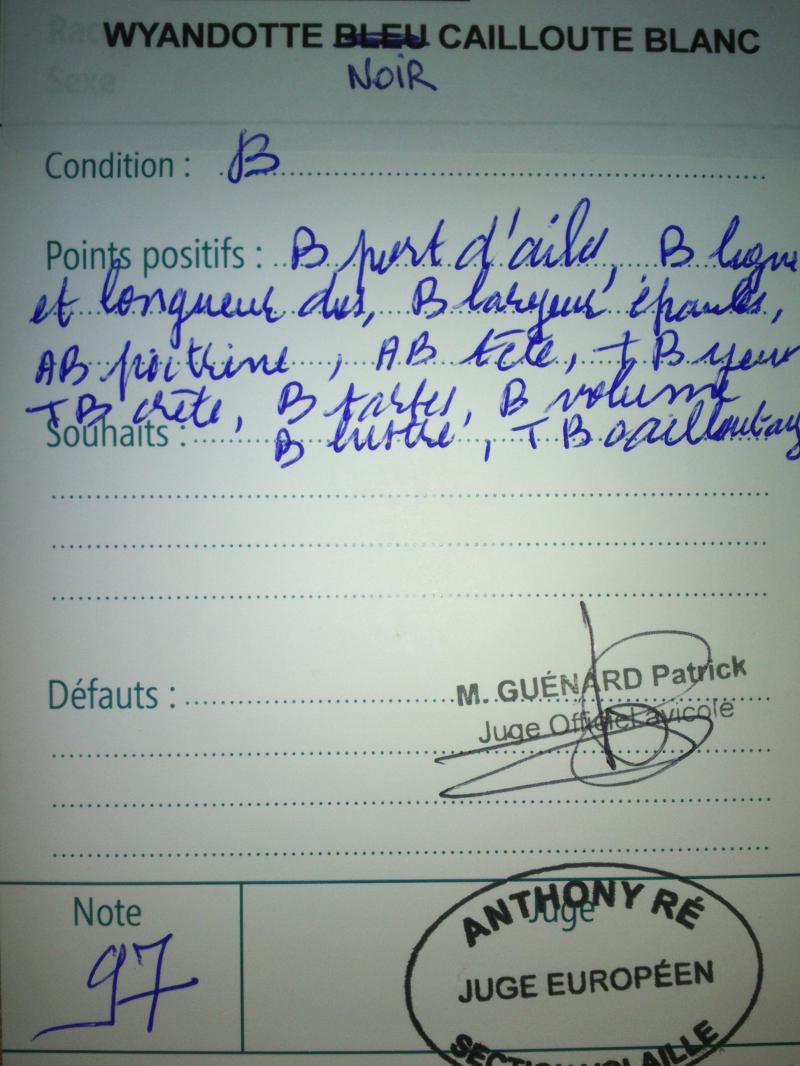 Race
WYANDOTTE BLEU CAILLOUTE BLANC
Sexe
NOIR
Condition : B
Points positifs : B port d'ailes, B ligne
et longueur dos, B largeur épaules,
AB poitrine, AB tête, TB yeux
TB crête, B tarses, B volume
Souhaits :
B lustre, TB cailloutage
Défauts :
M. GUÉNARD Patrick
Juge Officiel avicole
Note
Juge
97
ANTHONY RÉ
JUGE EUROPÉEN
SECTION VOLAILLE